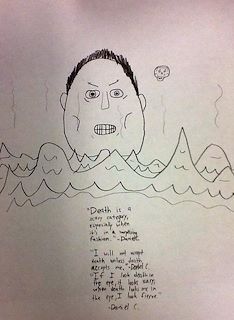 "Death is a
scary category,
especially when
it's in a
fashion." -Daniel C.
"I will not accept
death unless death
accepts me." -Daniel C.
"If I look death in
the eye, it looks away,
when death looks me in
the eye, I look fierce."
-Daniel C.